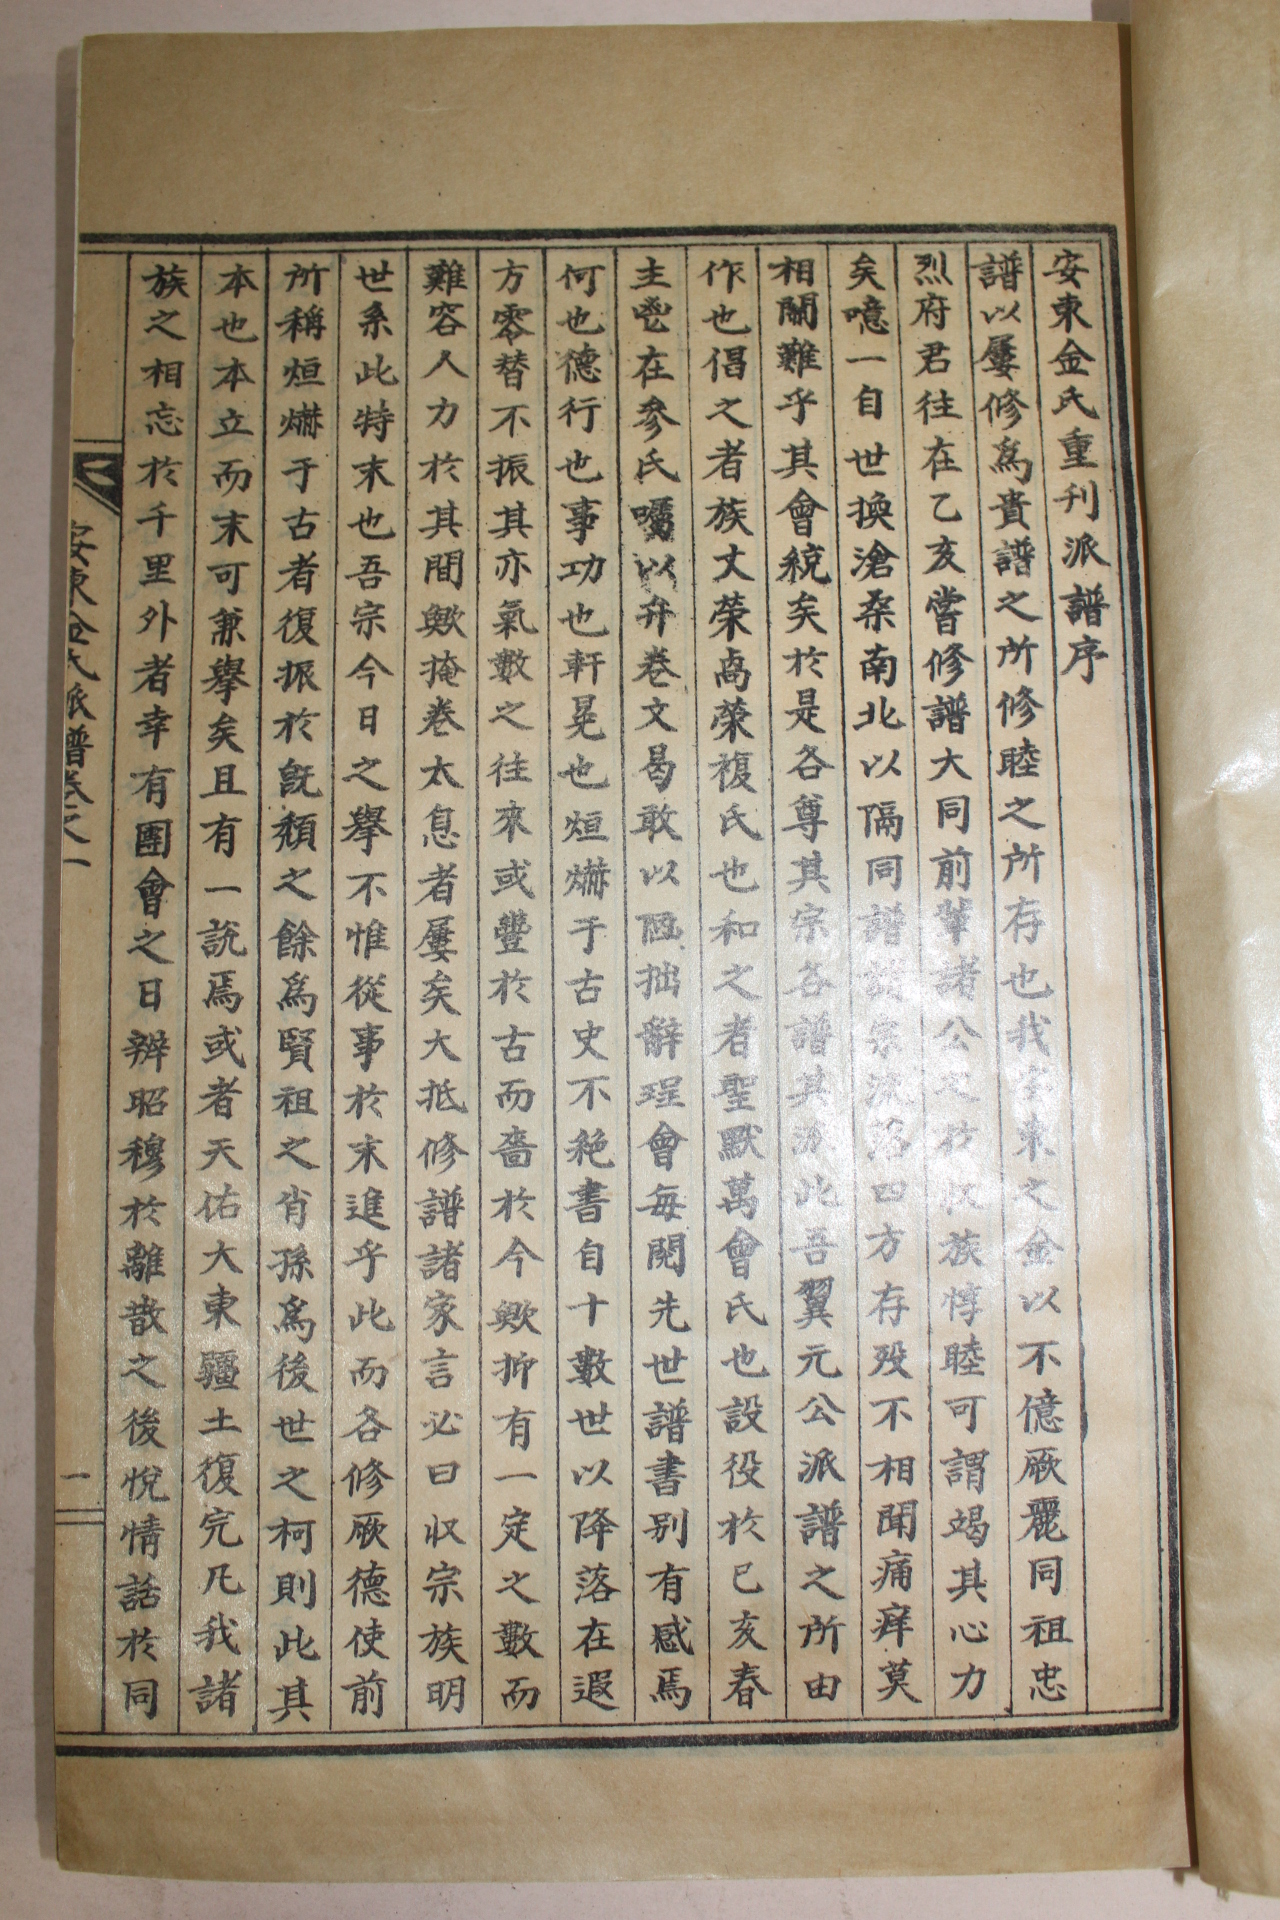 安東金氏重刊派譜序
譜以屢修爲貴譜之所修睦之所存也我安東之金以不億厥麗同祖忠
烈府君往在乙亥嘗修譜大同前輩諸公之於收族惇睦可謂竭其心力
矣噫一自世換滄桑南北以隔同譜諸宗流落四方存歿不相聞痛癢莫
相關難乎其會統矣於是各尊其宗各譜其派此吾翼元公派譜之所由
作也倡之者族丈榮卨榮複氏也和之者聖默萬會氏也設役於己亥春
主鬯在參氏囑以弁卷文曷敢以陋拙辭珵會每閱先世譜書別有感焉
何也德行也事功也軒冕也烜爀于古史不絶書自十數世以降落在遐
方零替不振其亦氣數之往來或豐於古而嗇於今歟抑有一定之數而
難容人力於其間歟掩卷太息者屢矣大抵修譜諸家言必曰收宗族明
世系此特末也吾宗今日之擧不惟從事於末進乎此而各修厥德使前
所稱烜爀于古者復振於旣頹之餘爲賢祖之肖孫爲後世之柯則此其
本也本立而末可兼擧矣且有一說焉或者天佑大東疆土復完凡我諸
族之相忘於千里外者幸有團會之日辨昭穆於離散之後悅情話於同
安東金氏派譜卷之一
一